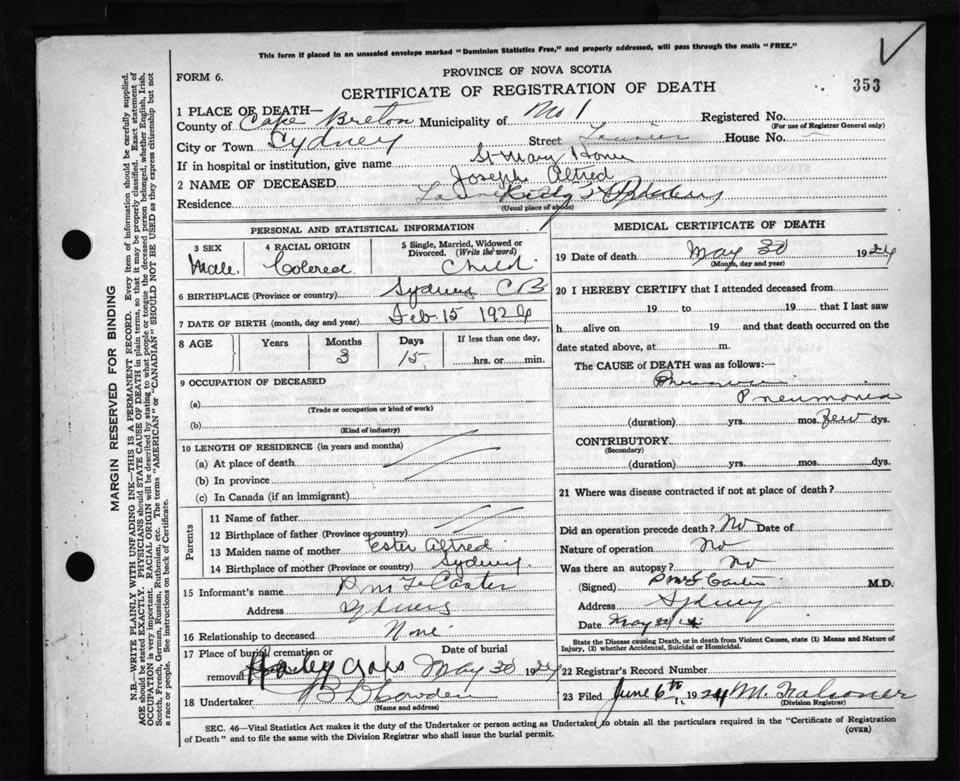 This form if placed in an unsealed envelope marked "Dominion Statistics Free," and properly addressed, will pass through the mails "FREE."
FORM 6.
PROVINCE OF NOVA SCOTIA
353
CERTIFICATE OF REGISTRATION OF DEATH
1 PLACE OF DEATH—
County of Cape Breton Municipality of No 1 Registered No.
(For use of Registrar General only)
City or Town Sydney Street House No.
If in hospital or institution, give name St Mary Home
2 NAME OF DECEASED Joseph Alfred
Residence
(Usual place of abode)
PERSONAL AND STATISTICAL INFORMATION
3 SEX Male
4 RACIAL ORIGIN Colered
5 Single, Married, Widowed or Divorced. (Write the word) Child
6 BIRTHPLACE (Province or country) Sydney CB
7 DATE OF BIRTH (month, day and year) Feb. 15 1924
8 AGE Years Months 3 Days 15 If less than one day, hrs. or min.
9 OCCUPATION OF DECEASED
(a)
(Trade or occupation or kind of work)
(b)
(Kind of industry)
10 LENGTH OF RESIDENCE (in years and months)
(a) At place of death
(b) In province
(c) In Canada (if an immigrant)
Parents
11 Name of father
12 Birthplace of father (Province or country)
13 Maiden name of mother Ester Alfred
14 Birthplace of mother (Province or country) Sydney
15 Informant's name
Address Sydney
16 Relationship to deceased None
17 Place of burial, cremation or removal Date of burial May 30 1924
18 Undertaker
(Name and address)
MEDICAL CERTIFICATE OF DEATH
19 Date of death May 30 1924
(Month, day and year)
20 I HEREBY CERTIFY that I attended deceased from
19 to 19 that I last saw
h alive on 19 and that death occurred on
date stated above, at m.
The CAUSE of DEATH was as follows:
Pneumonia
(duration) yrs. mos. Few dys.
CONTRIBUTORY
(Secondary)
(duration) yrs. mos. dys.
21 Where was disease contracted if not at place of death?
Did an operation precede death? No Date of
Nature of operation No
Was there an autopsy? No
(Signed) M.D.
Address Sydney
Date May
State the Disease causing Death, or in death from Violent Causes, state (1) Means and Nature of Injury, (2) whether Accidental, Suicidal or Homicidal.
22 Registrar's Record Number
23 Filed June 6th 1924
(Division Registrar)
SEC. 46—Vital Statistics Act makes it the duty of the Undertaker or person acting as Undertaker to obtain all the particulars required in the "Certificate of Registration of Death" and to file the same with the Division Registrar who shall issue the burial permit.
(OVER)
MARGIN RESERVED FOR BINDING
N.B.—WRITE PLAINLY WITH UNFADING INK—THIS IS A PERMANENT RECORD. Every item of information should be carefully supplied.
AGE should be stated EXACTLY. PHYSICIANS should STATE CAUSE OF DEATH in plain terms, so that it may be properly classified. Exact statement of
OCCUPATION is very important. RACIAL ORIGIN will be described by stating to what people or tongue the deceased person belonged, whether English, Irish,
Scotch, French, German, Russian, Ruthenian, etc. The terms "AMERICAN" or "CANADIAN" SHOULD NOT BE USED as they express citizenship but not
a race or people. See instructions on back of Certificate.